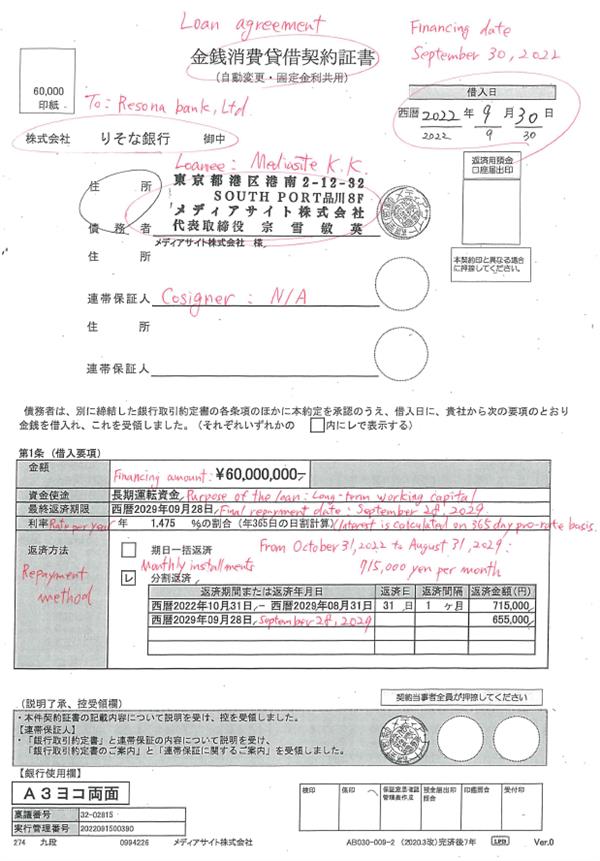 Loan agreement
Financing date
September 30, 2022
金銭消費貸借契約証書
(自動変更・固定金利共用)
60,000
印紙
To: Resona bank, Ltd.
株式会社 りそな銀行 御中
借入日
西暦 2022 年 9 月 30 日
2022 9 30
返済用預金
口座届出印
Loanee: Mediasite K.K.
住所
東京都港区港南2-12-32
SOUTH PORT品川8F
メディアサイト株式会社
債務者
代表取締役 宗雪敏英
メディアサイト株式会社 様
本契約印と異なる場合
に押捺してください。
住所
連帯保証人 Cosigner: N/A
住所
連帯保証人
債務者は、別に締結した銀行取引約定書の各条項のほかに本約定を承認のうえ、借入日に、貴社から次の要項のとおり
金銭を借入れ、これを受領しました。(それぞれいずれかの □内にレで表示する)
第1条(借入要項)
金額 Financing amount: ¥60,000,000-
資金使途 長期運転資金 Purpose of the loan: Long-term working capital
最終返済期限 西暦2029年09月28日 Final repayment date: September 28, 2029
利率 Rate per year 年 1.475 %の割合(年365日の日割計算) Interest is calculated on 365 day pro-rate basis.
返済方法 □ 期日一括返済 From October 31, 2022 to August 31, 2029:
Repayment method
Monthly installments 715,000 yen per month
レ 分割返済
返済期間または返済年月日 返済日 返済間隔 返済金額(円)
西暦2022年10月31日 - 西暦2029年08月31日 31 日 1 ヶ月 715,000
西暦2029年09月28日 September 28, 2029 655,000
契約当事者全員が押捺してください
(説明了承、控受領欄)
・本件契約証書の記載内容について説明を受け、控を受領しました。
【連帯保証人】
・「銀行取引約定書」と連帯保証の内容について説明を受け、
「銀行取引約定書のご案内」と「連帯保証に関するご案内」を受領しました。
【銀行使用欄】
A3ヨコ両面
検印 係印 保証意思確認 管理表作成 預金届出印 照合 印鑑照合 受付印
稟議番号 32-02815
実行管理番号 2022091500390
274 九段 0994226 メディアサイト株式会社 AB030-009-2 (2020.3改)完済後7年 Ver.0